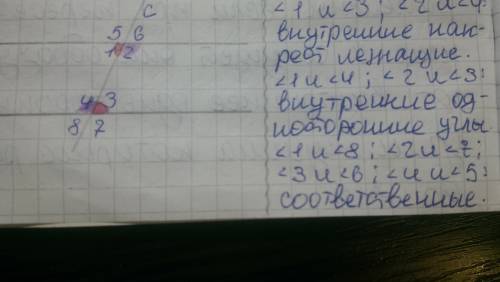 c
5 6
1 2
4 3
8 7
<1 и <3; <2 и <4
внутренние нак-
рест лежащие.
<1 и <4; <2 и <3:
внутренние од-
носторонние углы
<1 и <8; <2 и <7;
<3 и <6; <4 и <5:
соответственные.